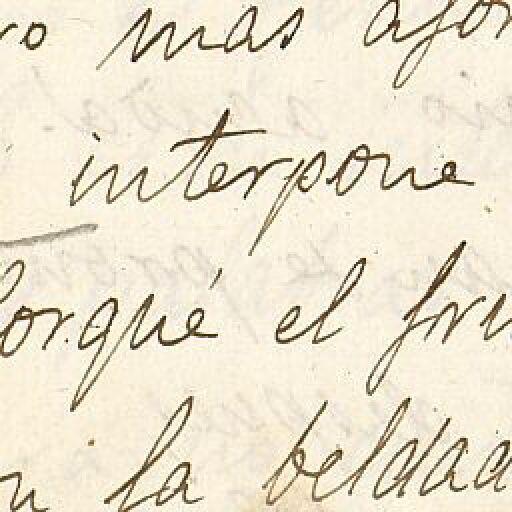 ro mas afor
interpone
Porqué el fru
n la beldad